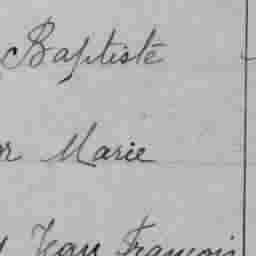 Baptiste
or Marie
Jean François